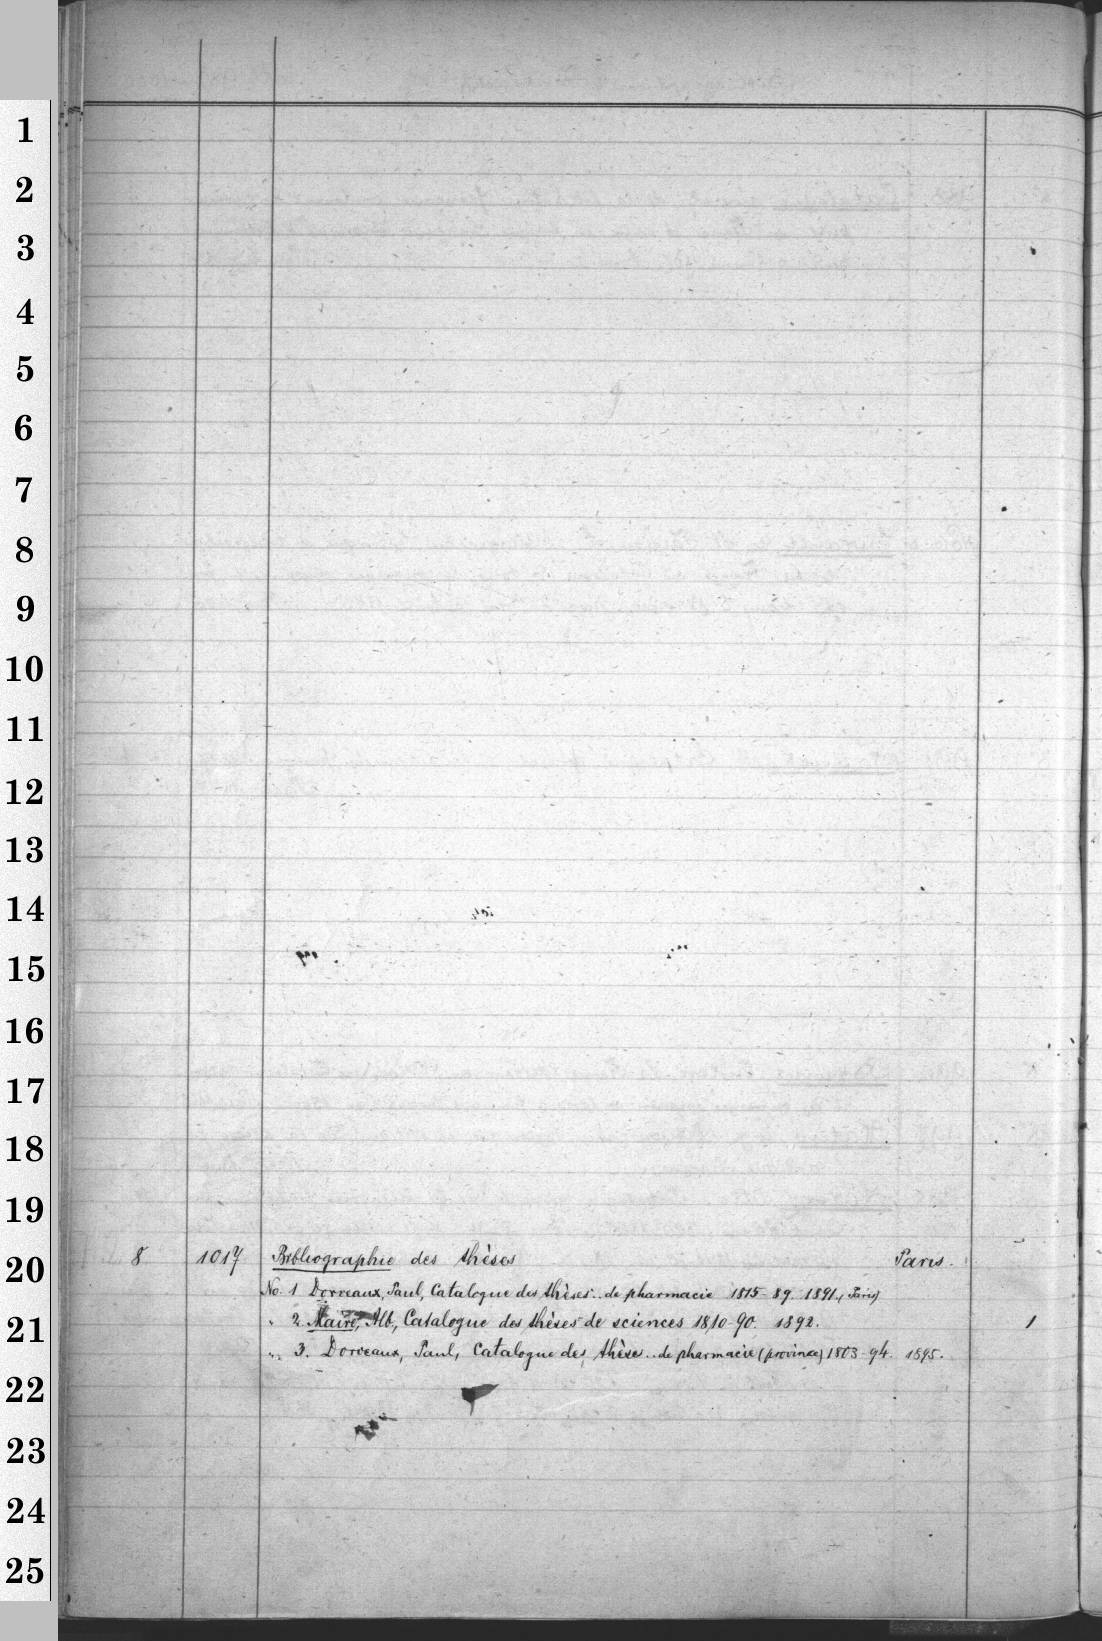 1
2
3
4
5
6
7
8
9
10
11
12
13
14
15
16
17
18
19
20
21
22
23
24
25
8 1017 Bibliographie des thèses Paris.
No. 1 Dorveaux, Paul, Catalogue des thèses.. de pharmacie 1815-89. 1891. (Paris)
" 2. Maire, Alb., Catalogue des thèses de sciences 1810-90. 1892. 1
" 3. Dorveaux, Paul, Catalogue des thèses.. de pharmacie (province) 1803-94. 1895.